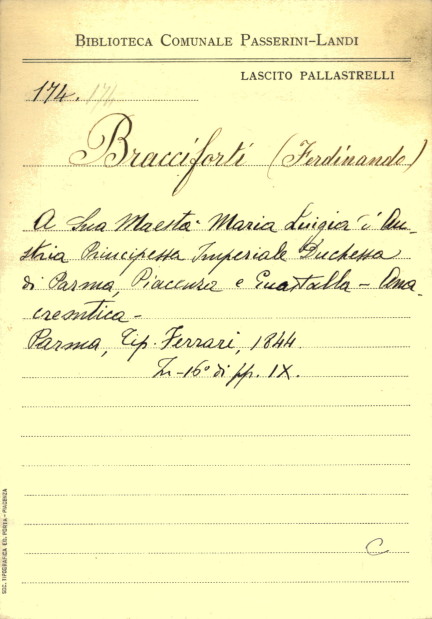 BIBLIOTECA COMUNALE PASSERINI-LANDI
LASCITO PALLASTRELLI
174. 174
Bracciforti (Ferdinando)
A Sua Maestà Maria Luigia d'Au-
stria Principessa Imperiale Duchessa
di Parma, Piacenza e Guastalla - Ana-
creontica -
Parma, Tip. Ferrari, 1844.
In-16° di pp. IX.
C
SOC. TIPOGRAFICA ED. PORTA - PIACENZA